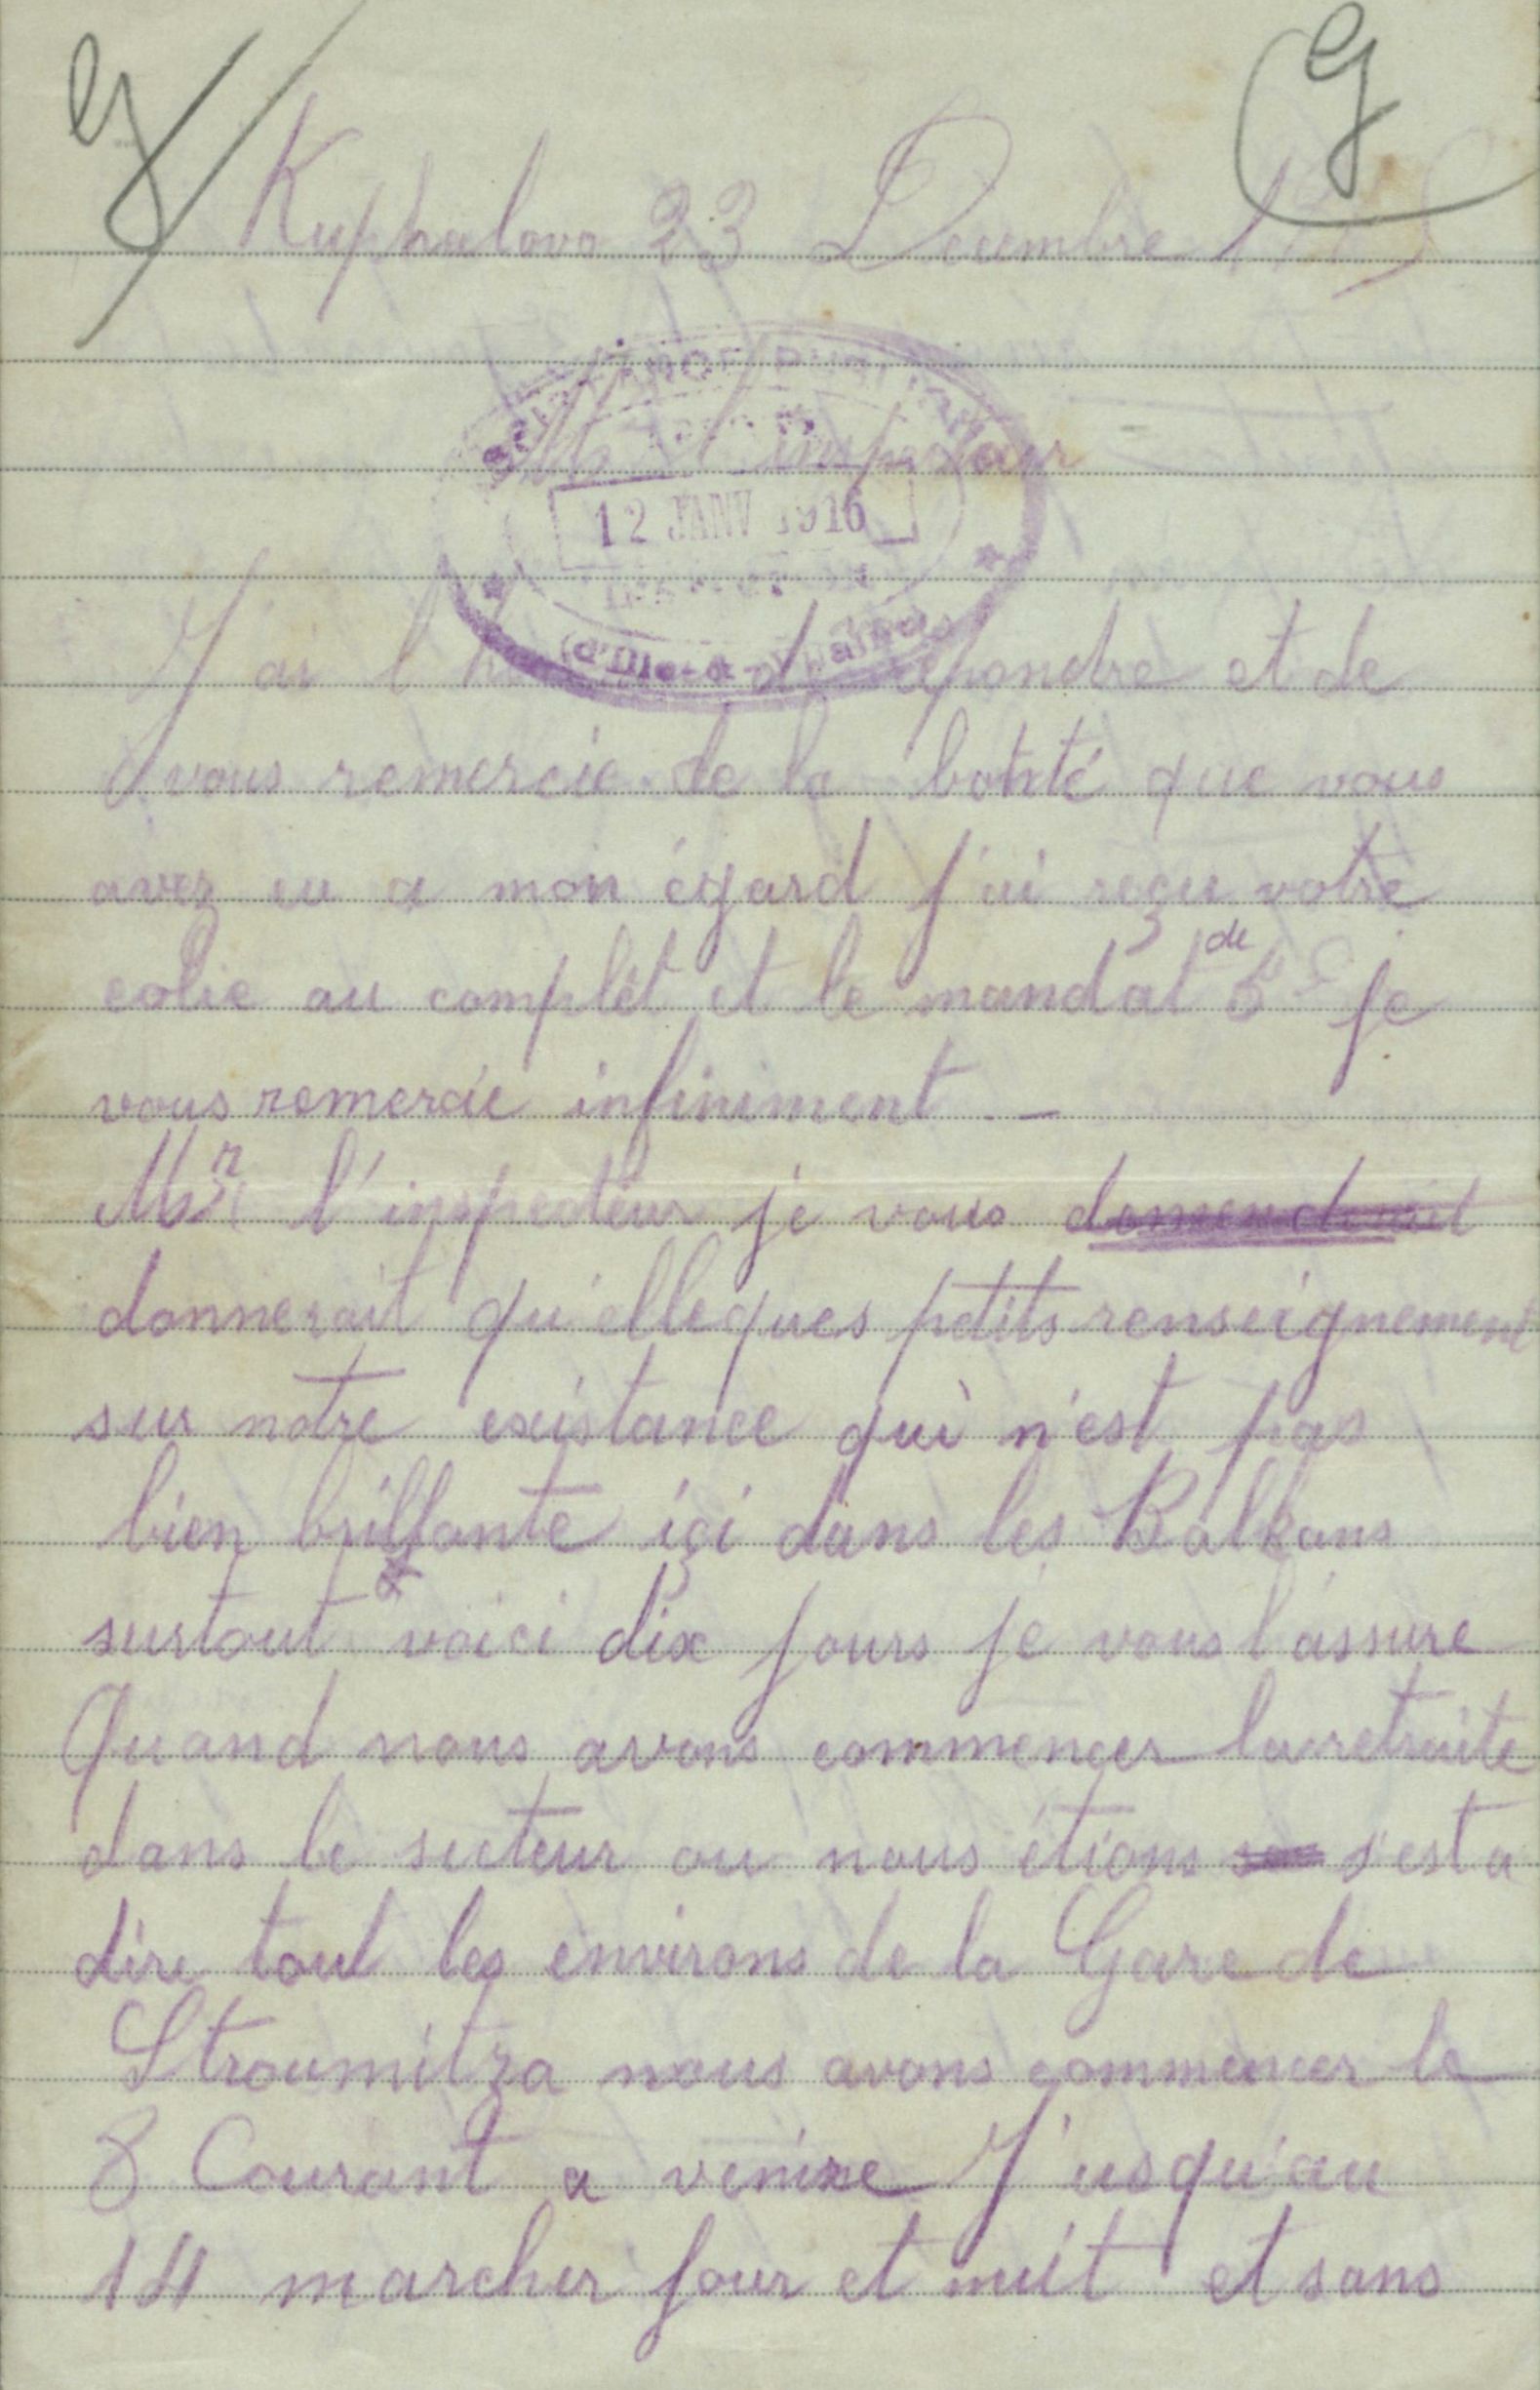 Kuphalovo 23 Decembre 1915
ASSISTANCE PUBLIQUE
Mr l'inspecteur
12 JANV 1916
INSPECTION
d'Ille-&-Vilaine
J'ai l'honneur de répondre et de
vous remercie de la bonté que vous
avez eu a mon égard j'ai reçu votre
colie au complèt et le mandat de 5f je
vous remercie infiniment –
Mr l'inspecteur je vous demanderait
donnerait qu'elleques petits renseignement
sur notre existance qui n'est pas
bien brillante içi dans les Balkans
surtout voici dix jours je vous l'assure
Quand nous avons commencer la retraite
dans le secteur ou nous étions s'est a
dire tout les environs de la Gare de
Stroumitza nous avons commencer le
8 Courant a venire J'usqu'au
14 marcher jour et nuit et sans